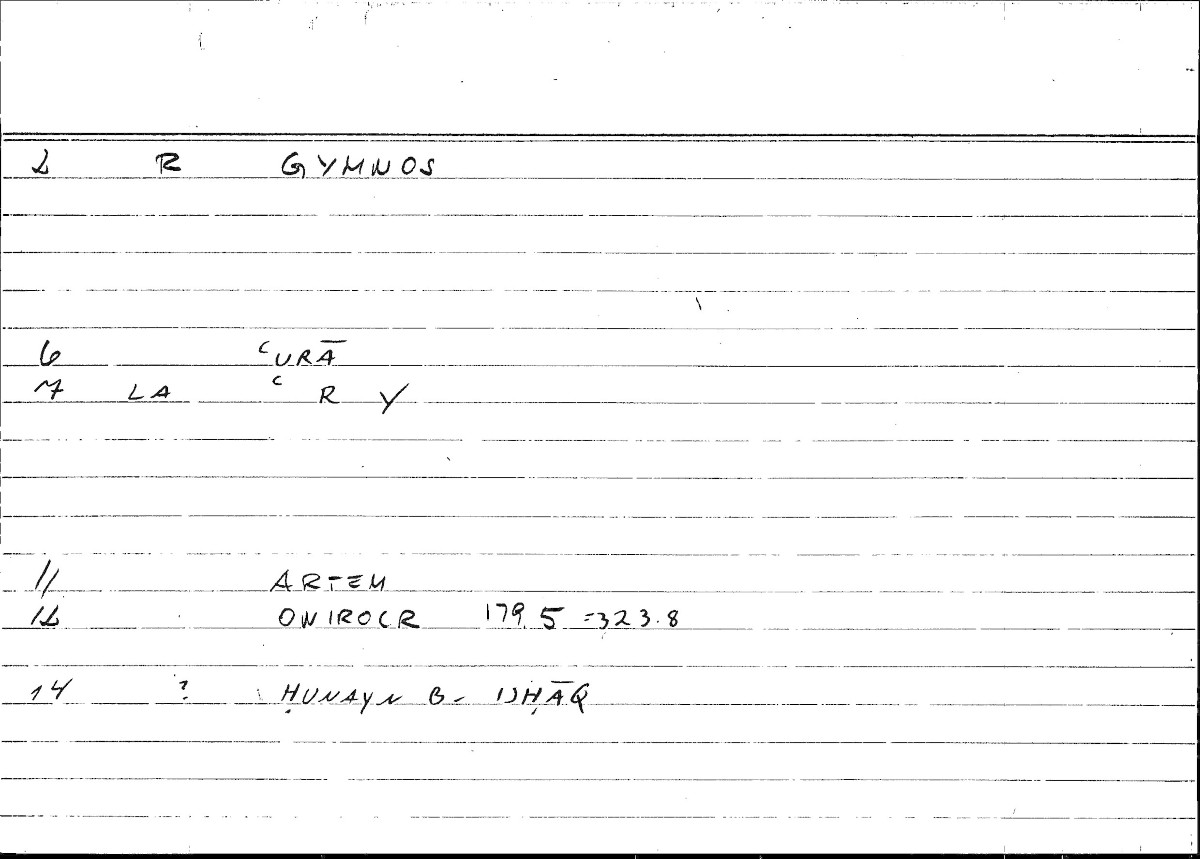 2 R GYMNOS
6 ʿURĀ
7 LA ʿ R Y
11 ARTEM
12 ONIROCR 179.5 = 323.8
14 ? ḤUNAYN B. ISḤĀQ